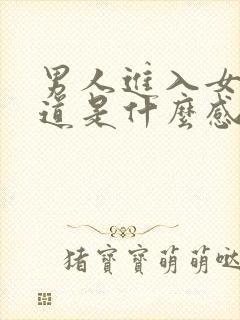 男人进入女
道是什麼感
猪寶寶萌萌哒